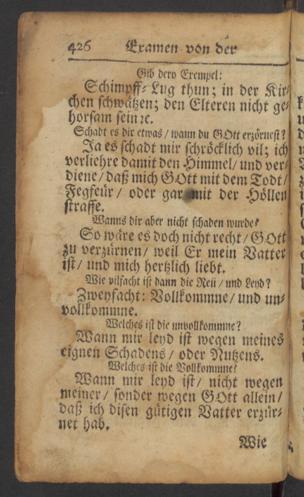 426 Examen von der
Gib dero Exempel:
Schimpff-Lug thun; in der Kir-
chen schwätzen; den Elteren nicht ge-
horsam sein ꝛc.
Schadt es dir etwas / wann du GOtt erzörnest?
Ja es schadt mir schröcklich vil; ich
verliehre damit den Himmel / und ver-
diene / daß mich GOtt mit dem Todt /
Fegfeür / oder gar mit der Höllen
straffe.
Wanns dir aber nicht schaden wurde?
So wäre es doch nicht recht / GOtt
zu verzürnen / weil Er mein Vatter
ist / und mich hertzlich liebt.
Wie vilfacht ist dann die Reü / und Leyd?
Zweyfacht: Vollkommne / und un-
vollkommne.
Welches ist die unvollkommne?
Wann mir leyd ist wegen meines
eignen Schadens / oder Nutzens.
Welches ist die Vollkommne?
Wann mir leyd ist / nicht wegen
meiner / sonder wegen GOtt allein /
daß ich disen gütigen Vatter erzür-
net hab.
Wie